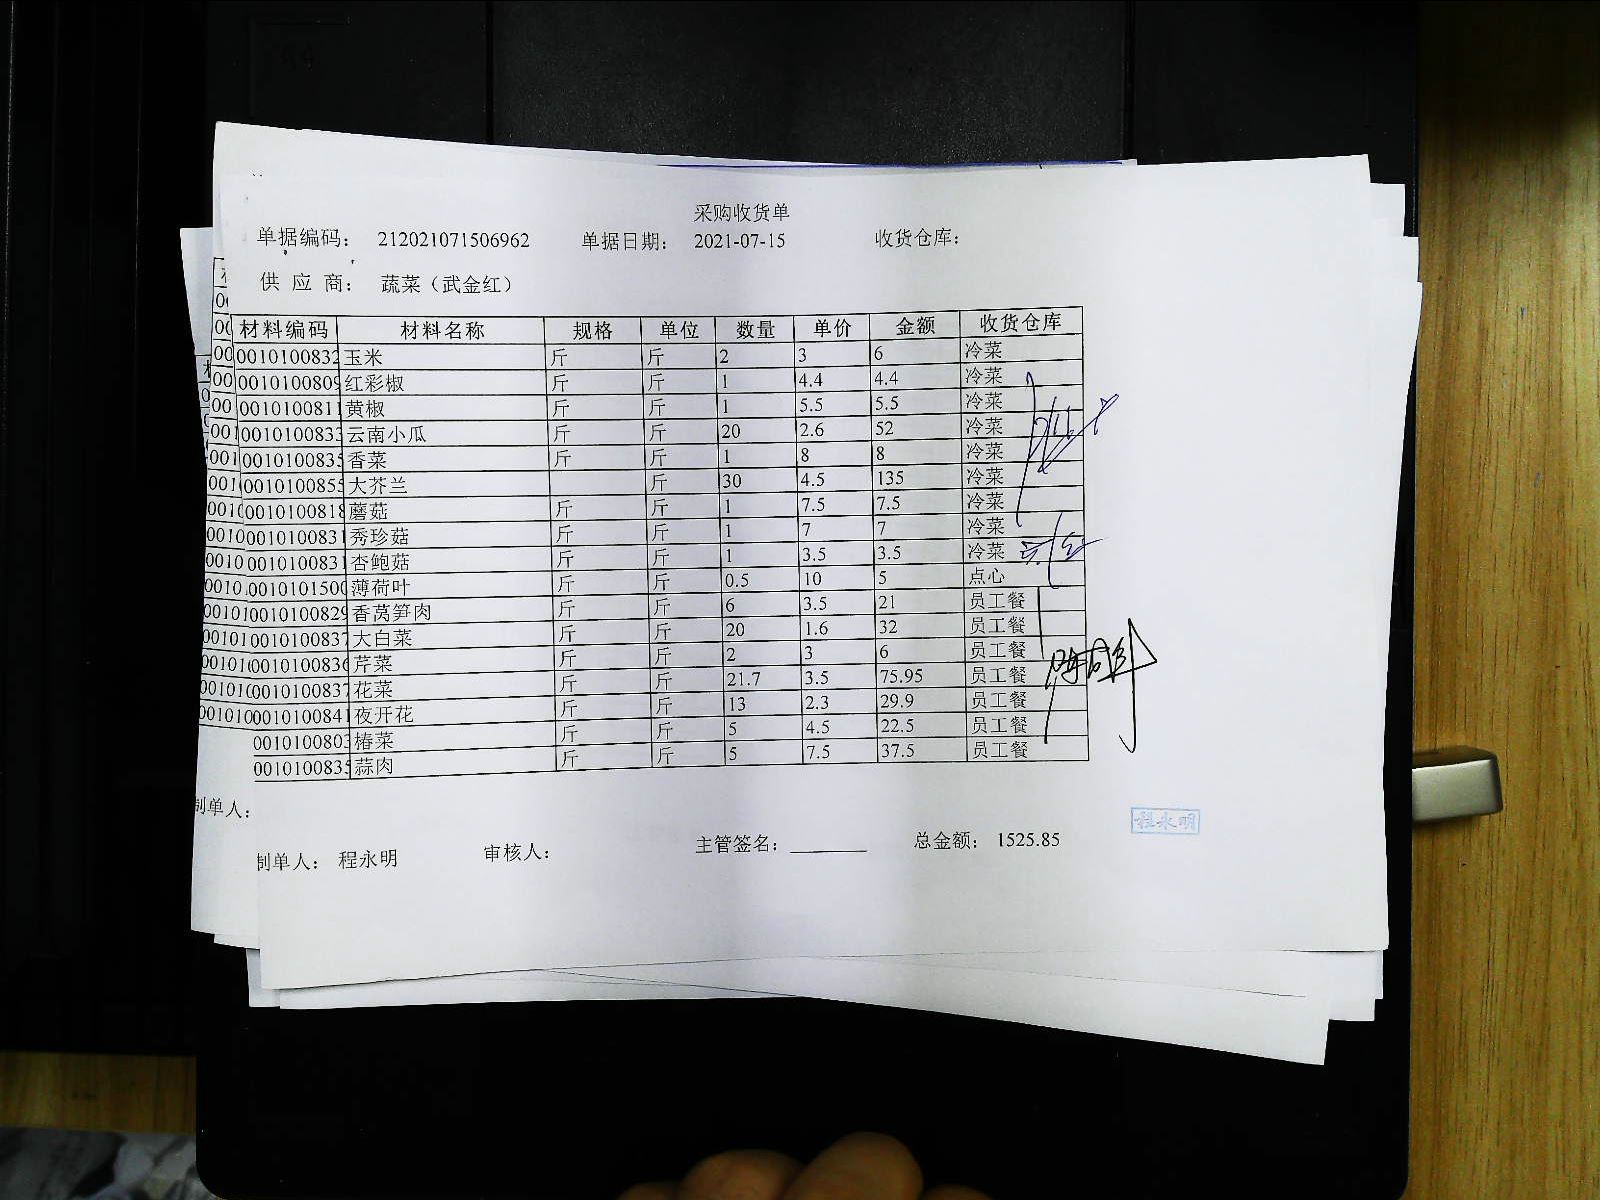 采购收货单
单据编码： 212021071506962 单据日期： 2021-07-15 收货仓库：
供 应 商： 蔬菜（武金红）
材料编码 材料名称 规格 单位 数量 单价 金额 收货仓库
0010100832 玉米 斤 斤 2 3 6 冷菜
0010100809 红彩椒 斤 斤 1 4.4 4.4 冷菜
0010100811 黄椒 斤 斤 1 5.5 5.5 冷菜
0010100833 云南小瓜 斤 斤 20 2.6 52 冷菜
0010100835 香菜 斤 斤 1 8 8 冷菜
0010100855 大芥兰 斤 30 4.5 135 冷菜
0010100818 蘑菇 斤 斤 1 7.5 7.5 冷菜
0010100831 秀珍菇 斤 斤 1 7 7 冷菜
0010100831 杏鲍菇 斤 斤 1 3.5 3.5 冷菜
0010101500 薄荷叶 斤 斤 0.5 10 5 点心
0010100829 香莴笋肉 斤 斤 6 3.5 21 员工餐
0010100837 大白菜 斤 斤 20 1.6 32 员工餐
0010100836 芹菜 斤 斤 2 3 6 员工餐
0010100837 花菜 斤 斤 21.7 3.5 75.95 员工餐
0010100841 夜开花 斤 斤 13 2.3 29.9 员工餐
0010100803 椿菜 斤 斤 5 4.5 22.5 员工餐
0010100835 蒜肉 斤 斤 5 7.5 37.5 员工餐
制单人：
程永明
制单人： 程永明 审核人： 主管签名： 总金额： 1525.85